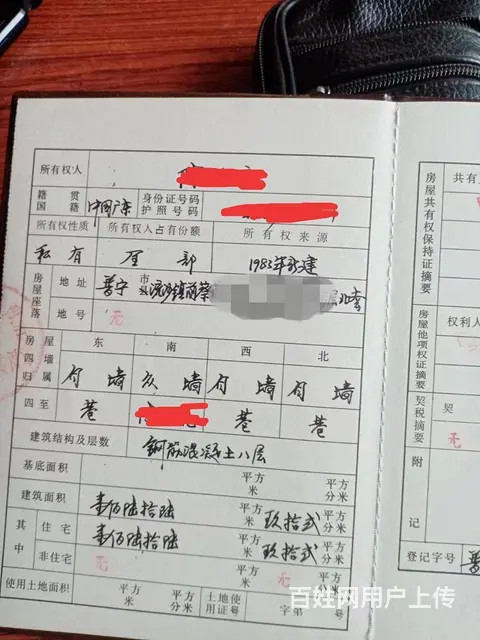 所有权人
籍贯 国籍 中国广东 身份证号码 护照号码
所有权性质 所有权人占有份额 所有权来源
私有 全部 1983年新建
房屋座落 地址 普宁 市县 流沙镇
地号 无
房屋四墙归属 东 南 西 北
自墙 墙 自墙 自墙
四至 巷 巷 巷
建筑结构及层数 钢筋混凝土八层
基底面积 平方米 平方分米
建筑面积 壹佰陆拾陆 平方米 玖拾贰 平方分米
其中 住宅 壹佰陆拾陆 平方米 玖拾贰 平方分米
非住宅 无 平方米 无 平方分米
使用土地面积 平方米 平方分米 土地使用证号 字第 号
共有
房屋共有权保持证摘要
权利人
房屋他项权证摘要
契税摘要 契
无
附
记
登记字号 普
百姓网用户上传